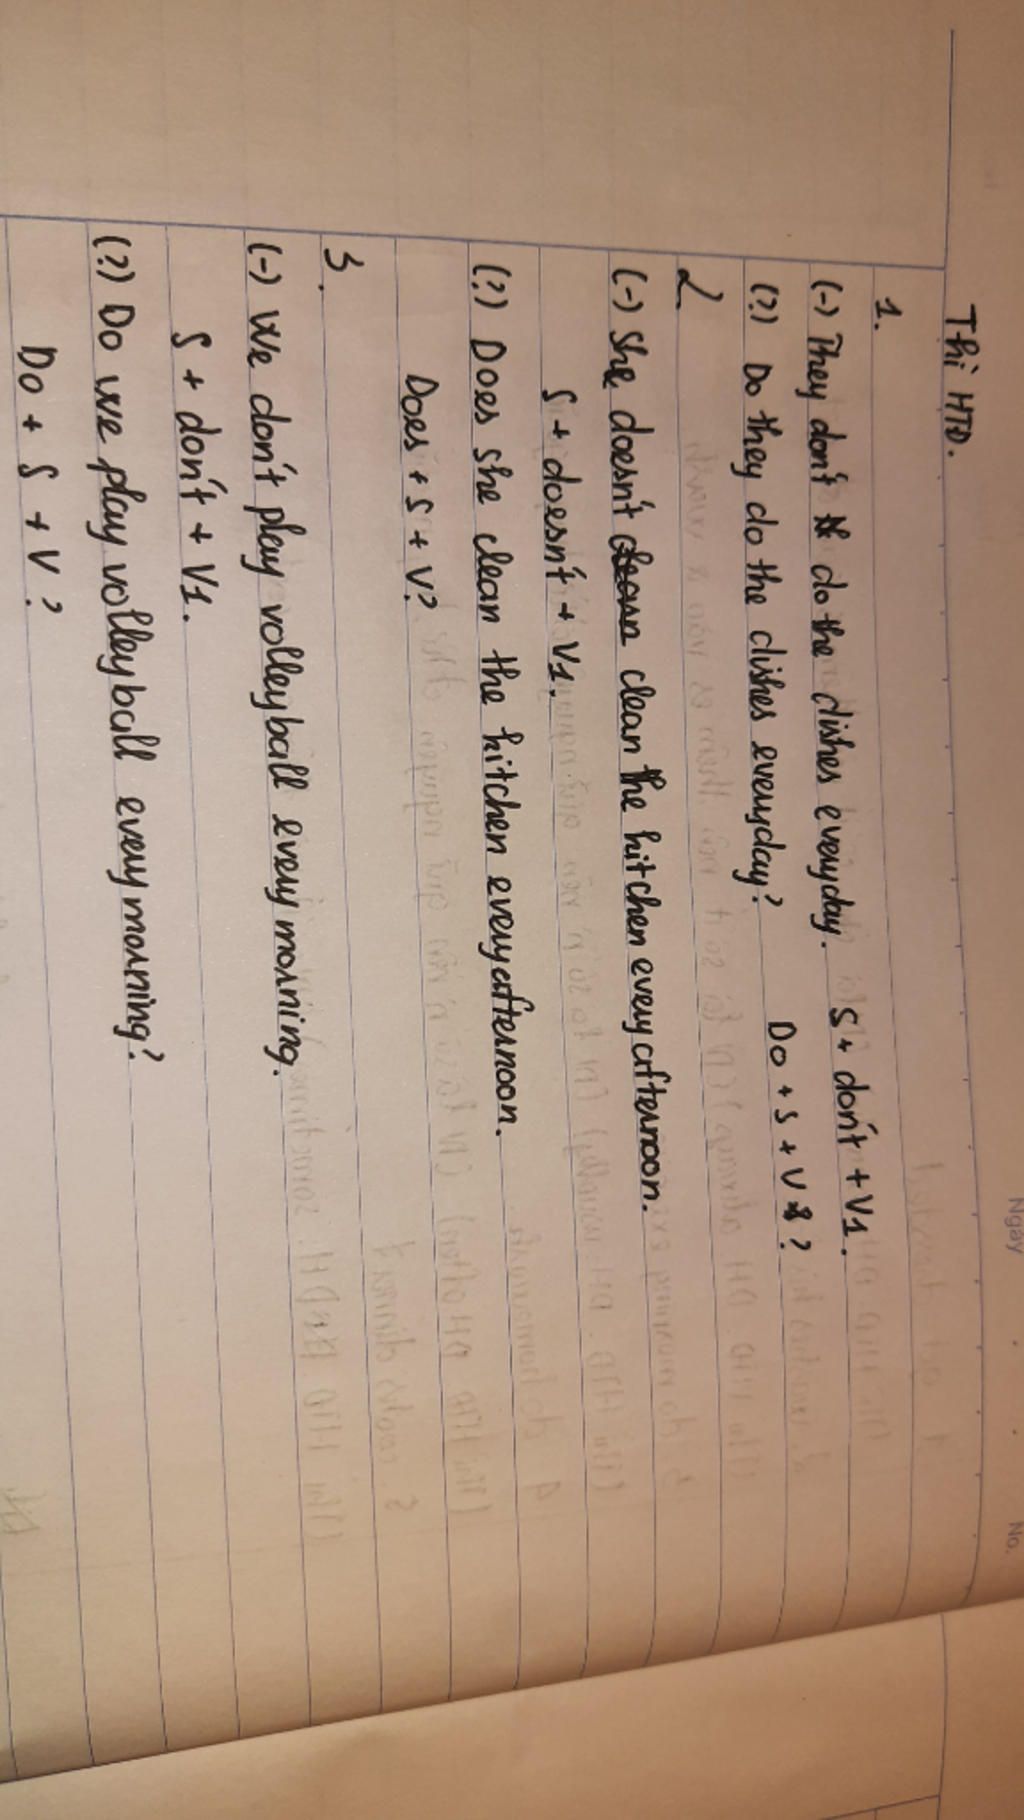 Ngày
No.
Thì HTD.
1.
(-) They don't do the dishes everyday. S + don't + V1.
(?) Do they do the dishes everyday? Do + S + V ?
2
(-) She doesn't clean the kitchen every afternoon.
S + doesn't + V1.
(?) Does she clean the kitchen every afternoon.
Does + S + V?
3.
(-) We don't play volleyball every morning.
S + don't + V1.
(?) Do we play volleyball every morning?
Do + S + V ?